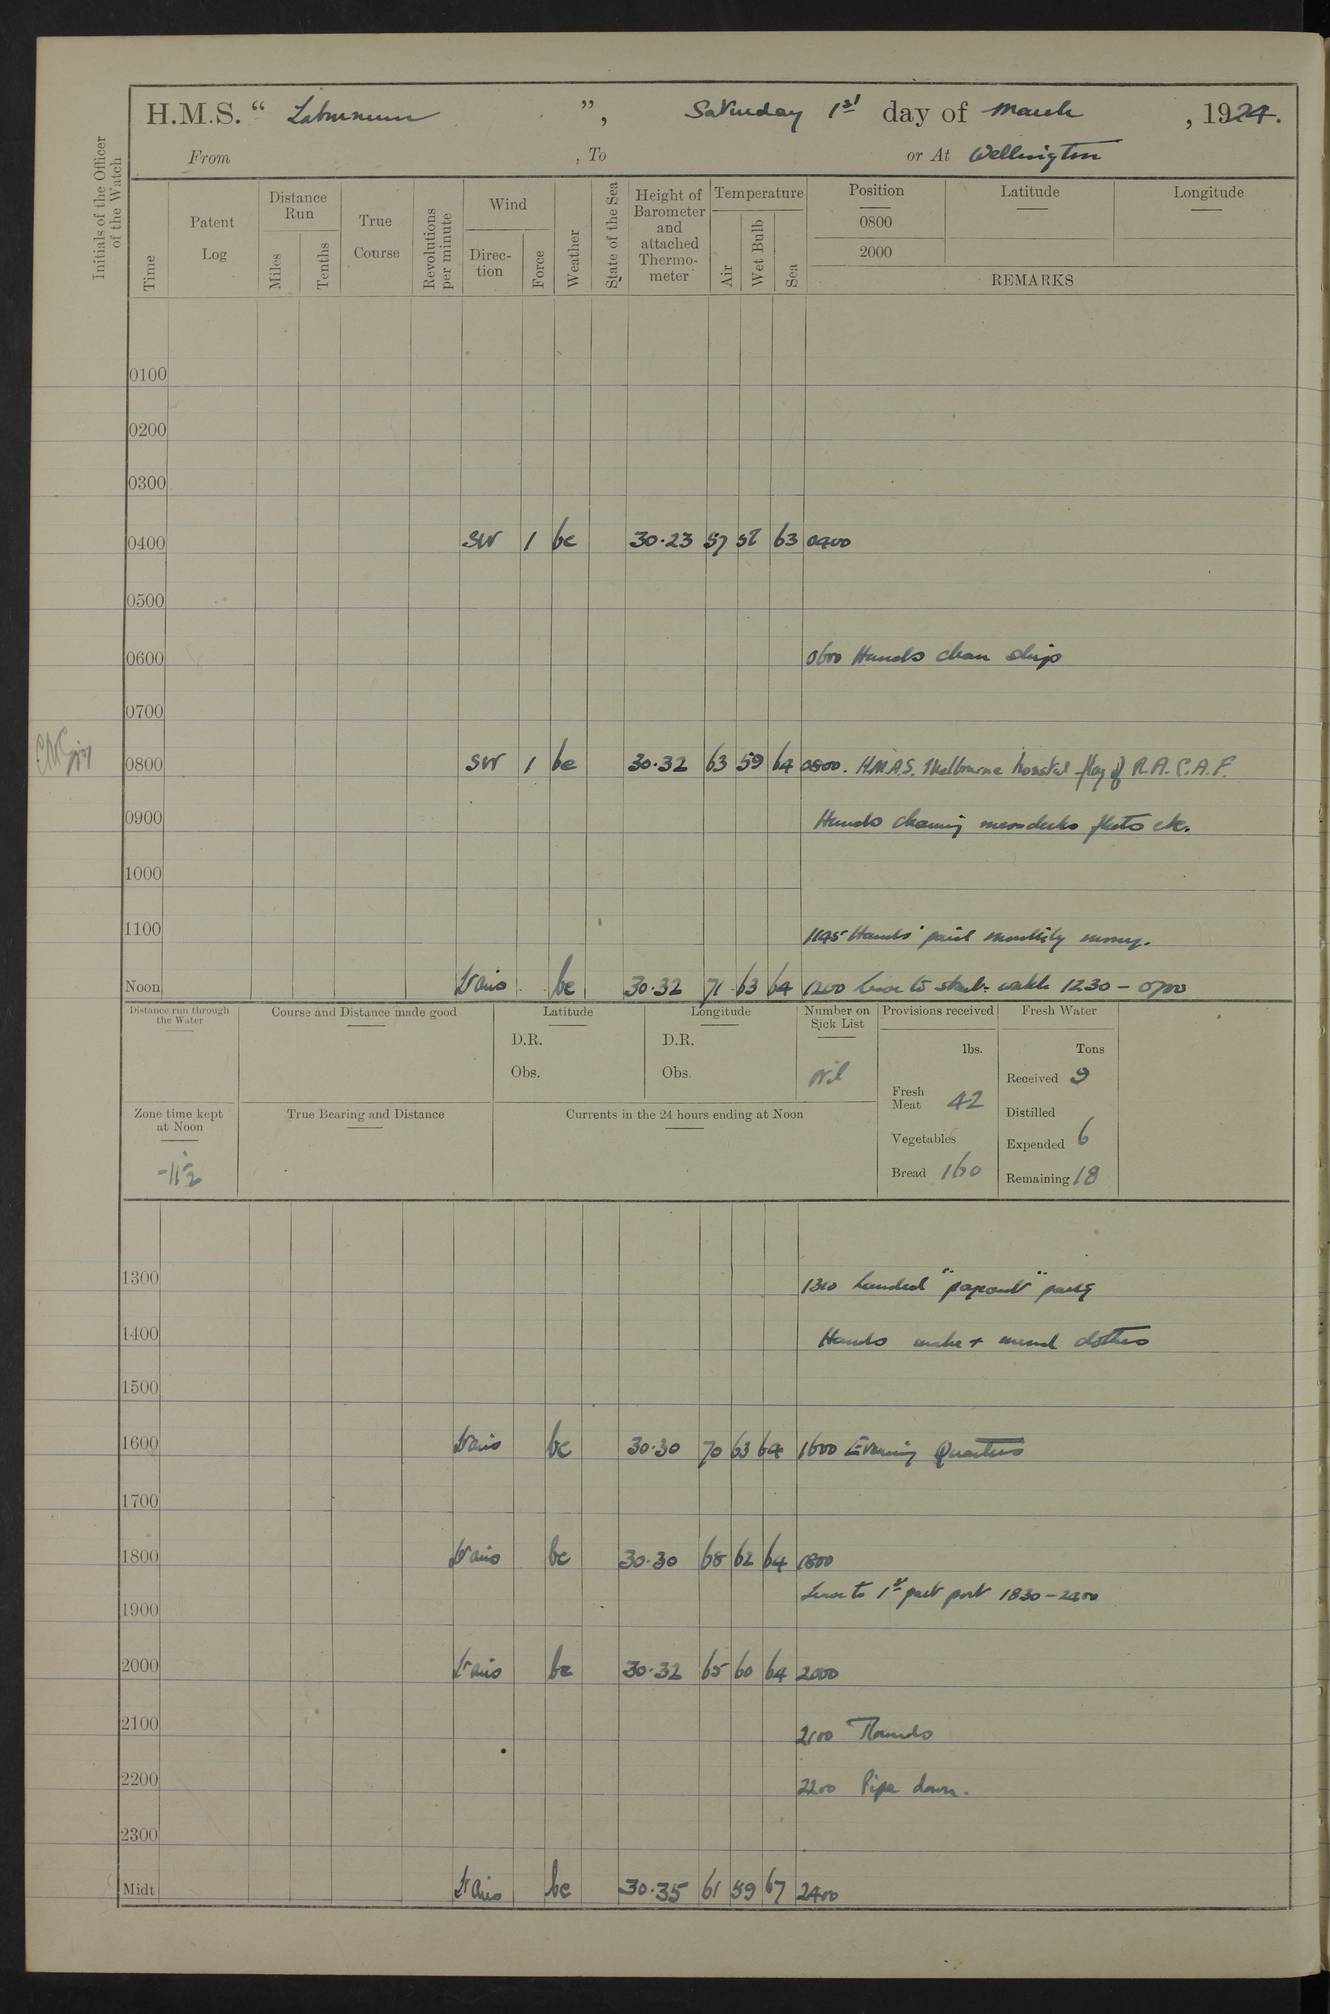 H.M.S. “ Laburnum ”, Saturday 1st day of March , 1924.
From , To or At Wellington
Initials of the Officer of the Watch
Time
Patent Log
Distance Run
Miles
Tenths
True Course
Revolutions per minute
Wind
Direc-tion
Force
Weather
State of the Sea
Height of Barometer and attached Thermo-meter
Temperature
Air
Wet Bulb
Sea
Position Latitude Longitude
0800
2000
REMARKS
0100
0200
0300
0400 SW 1 bc 30.23 57 63 0400
0500
0600 0600 Hands clean ship
0700
0800 SW 1 bc 30.32 63 59 64 0800. H.M.A.S. Melbourne hoisted flag of R.A.C.A.F.
0900 Hands cleaning messdecks flats etc.
1000
1100 1145 Hands paid monthly money.
Noon Vairs bc 30.32 71 63 64 1200 Leave to starb. watch 1230 – 0700
Distance run through the Water
Course and Distance made good
Latitude
D.R.
Obs.
Longitude
D.R.
Obs
Number on Sick List
Nil
Provisions received
lbs.
Fresh Meat 42
Vegetables
Bread 160
Fresh Water
Tons
Received 9
Distilled
Expended 6
Remaining 18
Zone time kept at Noon
-11½
True Bearing and Distance
Currents in the 24 hours ending at Noon
1300 1310 Landed "pageant" party
1400 Hands make + mend clothes
1500
1600 Vairs bc 30.30 70 63 64 1600 Evening Quarters
1700
1800 Vairs bc 30.30 68 62 64 1800
Leave to 1st part port 1830 – 2400
1900
2000 Vairs bc 30.32 65 60 64 2000
2100 2100 Rounds
2200 2200 Pipe down.
2300
Midt Vairs bc 30.35 61 59 67 2400